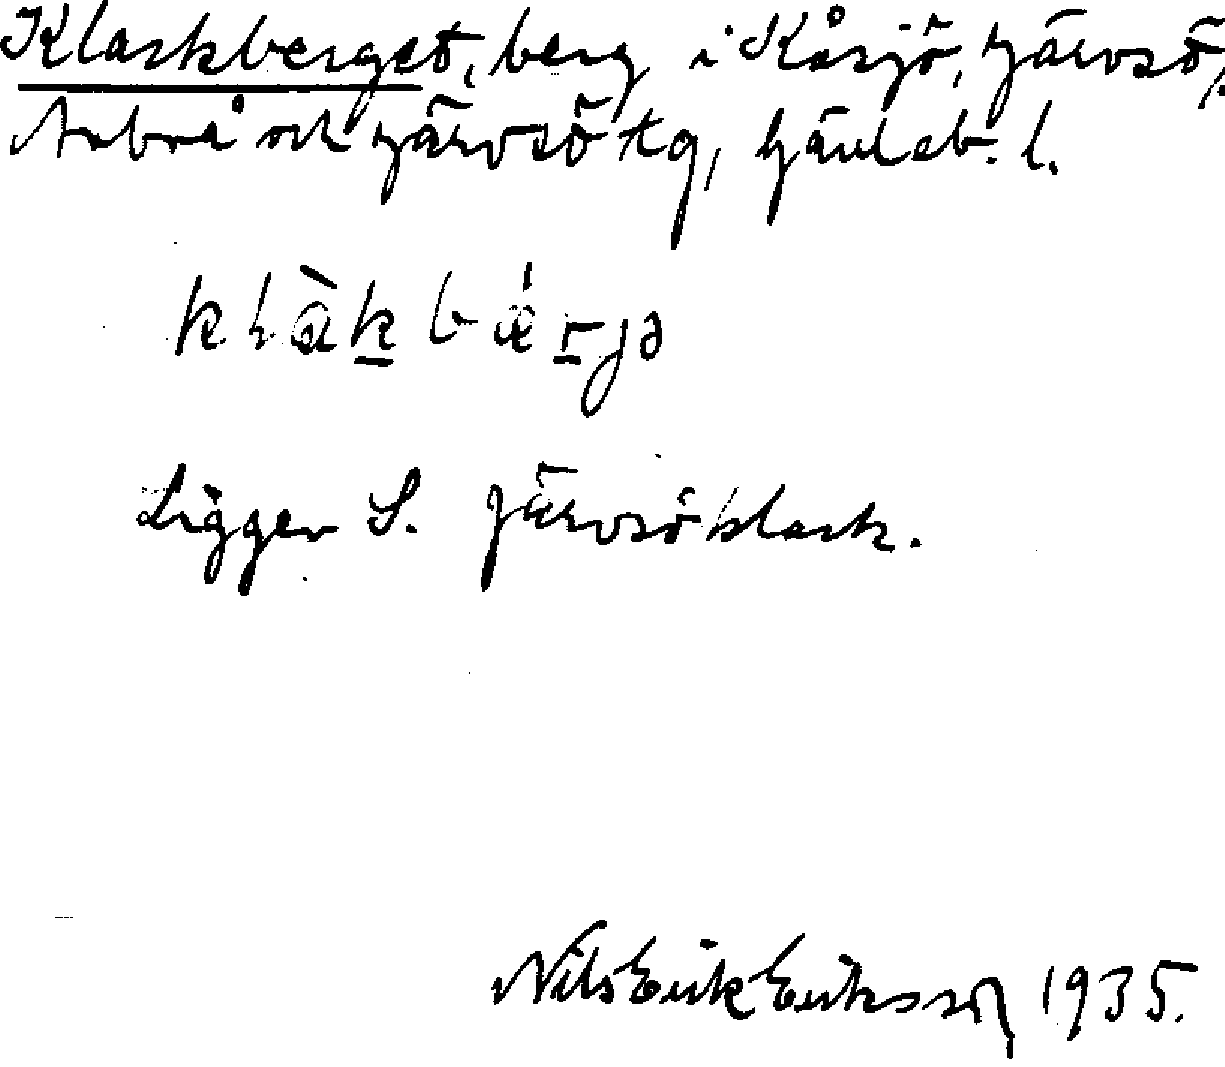 Klackberget, berg i Kåsjö, Järvsö,
Arbrå och Järvsö tg, Gävleb. l.
klàk bǽrjə
Ligger S. Järvsöklack.
Nils Erik Eriksson 1935.